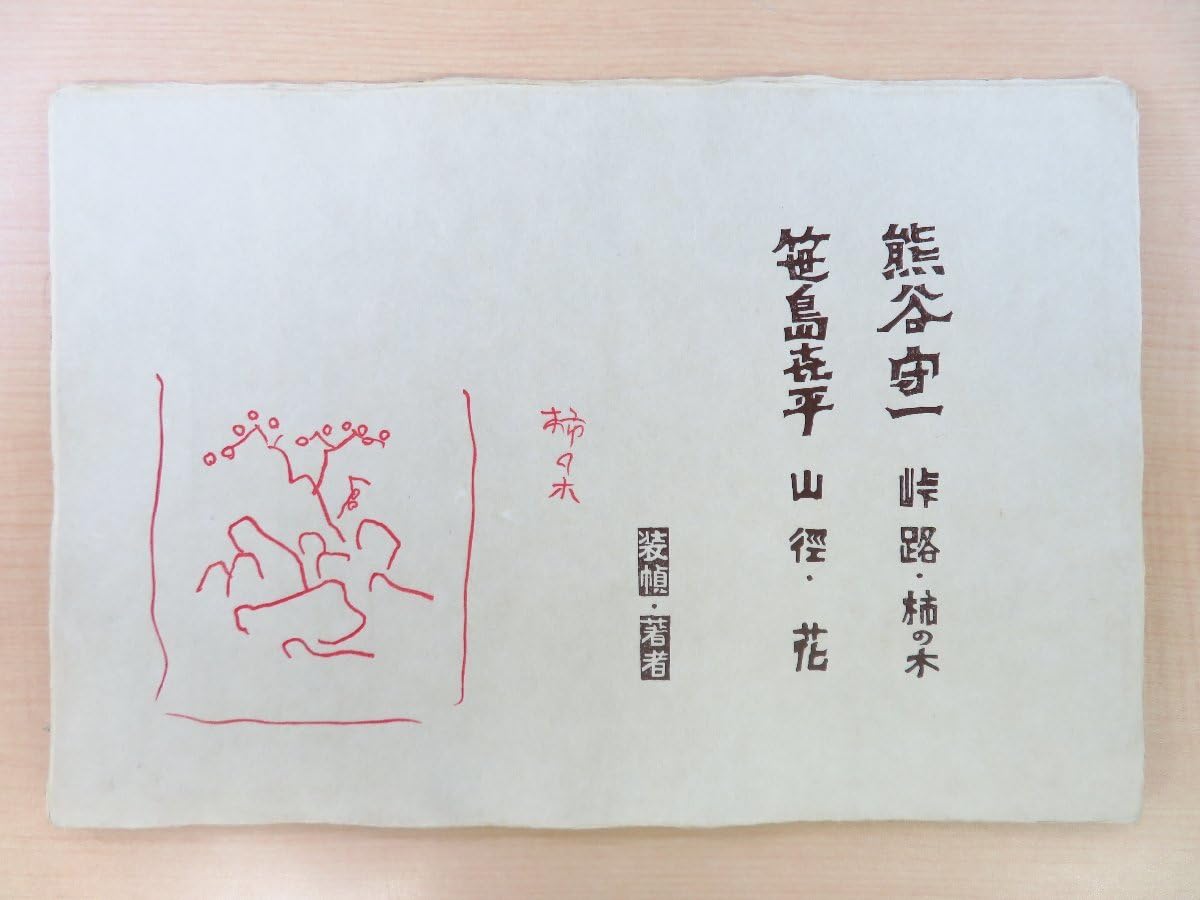 熊谷守一 峠路・柿の木
笹島喜平 山徑・花
装幀・著者
柿の木